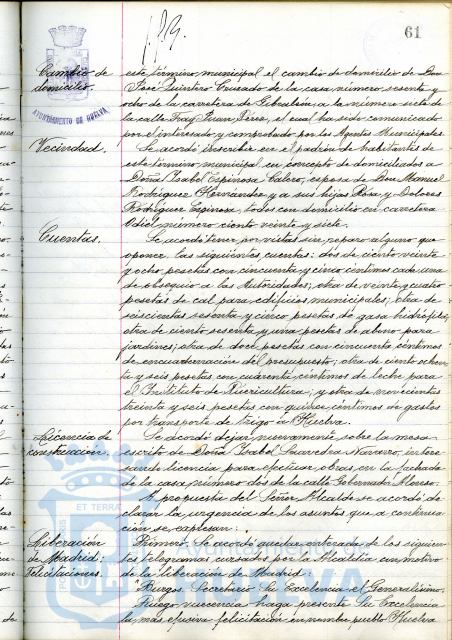 61
Cambio de domicilio.
este término municipal el cambio de domicilio de Don
José Quintero Crusado de la casa número sesenta y
ocho de la carretera de Gibraleón, a la número siete de
la calle Fray Juan Pérez, el cual ha sido comunicado
por el interesado y comprobado por los Agentes Municipales.
AYUNTAMIENTO DE HUELVA
Vecindad.
Se acordó inscribir en el padrón de habitantes de
este término municipal en concepto de domiciliados a
Doña Isabel Espinosa Calero, esposa de Don Manuel
Rodríguez Hernández y a sus hijas Rosa y Dolores
Rodríguez Espinosa, todos con domicilio en carretera
Odiel número ciento veinte y siete.
Cuentas.
Se acordó tener por vistas sin reparo alguno que
oponer, las siguientes cuentas: dos de ciento veinte
y ocho pesetas con cincuenta y cinco céntimos cada una
de obsequio a las Autoridades; otra de veinte y cuatro
pesetas de cal para edificios municipales; otra de
seiscientas sesenta y cinco pesetas de gasa hidrófila;
otra de ciento sesenta y una pesetas de abono para
jardines; otra de doce pesetas con cincuenta céntimos
de encuadernación del presupuesto; otra de ciento ochen
ta y seis pesetas con cuarenta céntimos de leche para
el Instituto de Puericultura; y otra de novecientas
treinta y seis pesetas con quince céntimos de gastos
por transporte de trigo a Huelva.
Licencia de construcción.
Se acordó dejar nuevamente sobre la mesa
escrito de Doña Isabel Saavedra Navarro, intere
sando licencia para efectuar obras en la fachada
de la casa número dos de la calle Gobernador Alonso.
A propuesta del Señor Alcalde se acordó de
clarar la urgencia de los asuntos que a continua
ción se expresan:
Liberación de Madrid; Felicitaciones.
Primero. Se acordó quedar enterada de los siguien
tes telegramas cursados por la Alcaldía con motivo
de la liberación de Madrid:
Burgos. Secretario Su Excelencia el Generalísimo.
Ruego vuecencia haga presente Su Excelencia
la más efusiva felicitación en nombre pueblo Huelva
ET TERRAE
Ayuntamiento de
HUELVA